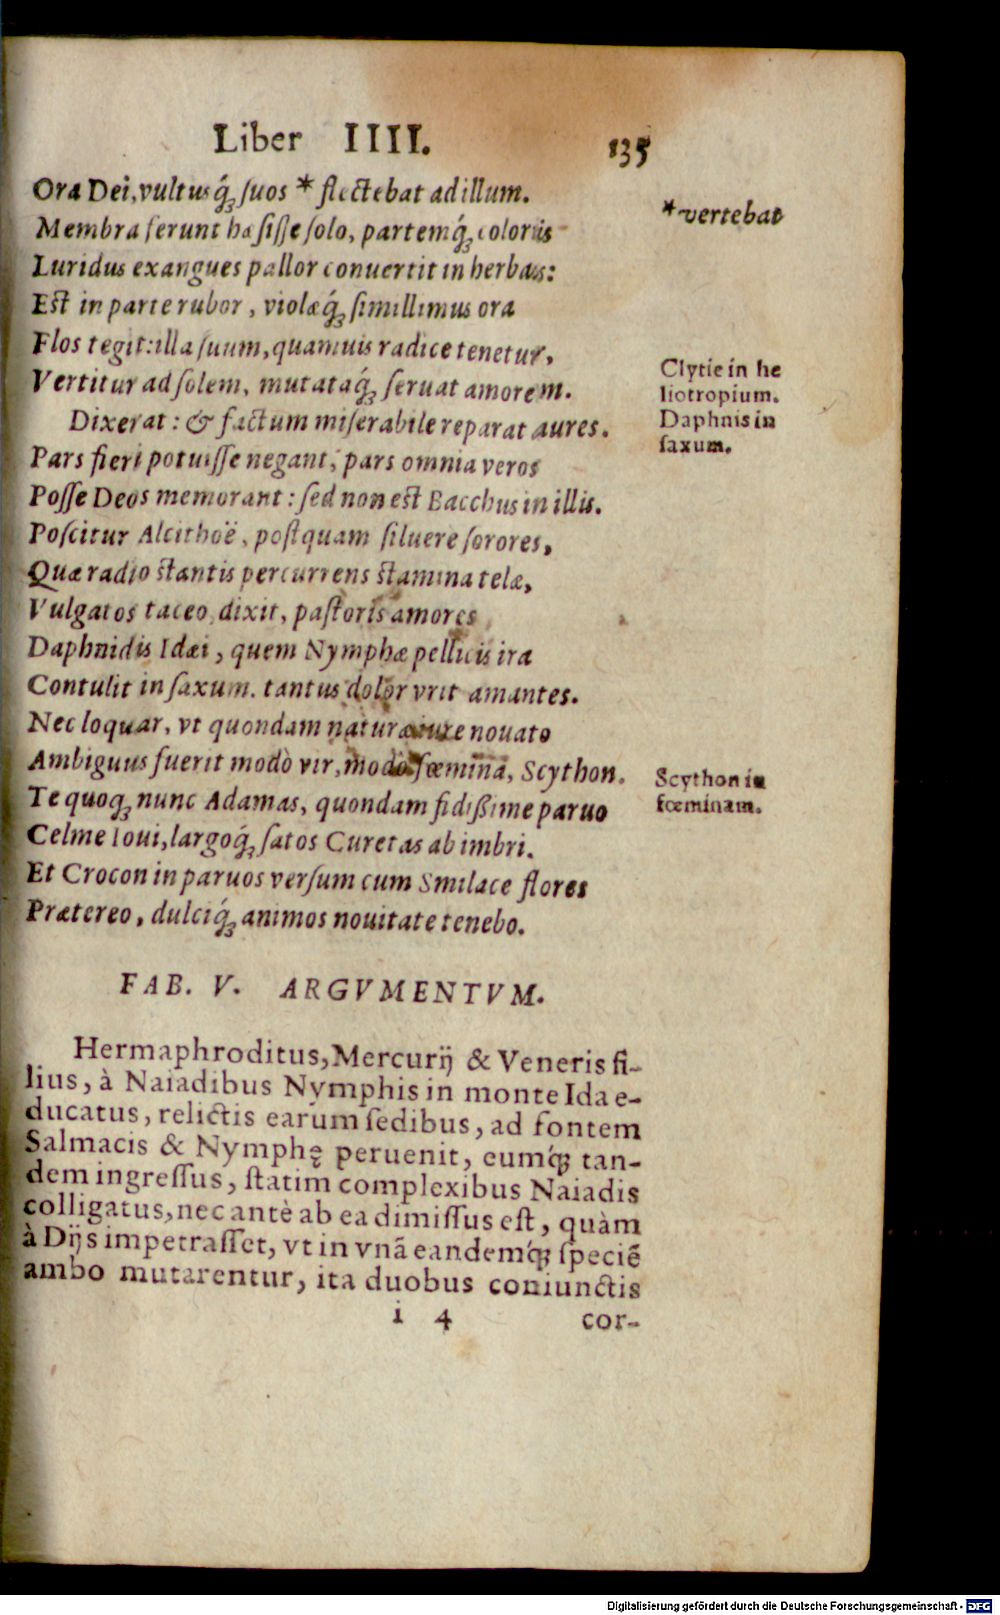 Liber IIII. 135
Ora Dei, vultusq́ꝫ suos * flectebat ad illum.
*vertebat
Membra ferunt hæsisse solo, partemq́ꝫ coloris
Luridus exangues pallor conuertit in herbas:
Est in parte rubor, violæq́ꝫ simillimus ora
Flos tegit: illa suum, quamuis radice tenetur,
Vertitur ad solem, mutataq́ꝫ seruat amorem.
Clytie in he
liotropium.
Dixerat: & factum miserabile reparat aures.
Daphnis in
saxum.
Pars fieri potuisse negant, pars omnia veros
Posse Deos memorant: sed non est Bacchus in illis.
Poscitur Alcithoë, postquam siluere sorores,
Quæ radio stantis percurrens stamina telæ,
Vulgatos taceo, dixit, pastoris amores
Daphnidis Idæi, quem Nymphæ pellicis ira
Contulit in saxum. tantus dolor vrit amantes.
Nec loquar, vt quondam naturæ iure nouato
Ambiguus fuerit modò vir, modò fœmina, Scython.
Scython in
fœminam.
Te quoqꝫ nunc Adamas, quondam fidißime paruo
Celme Ioui, largoq́ꝫ satos Curetas ab imbri.
Et Crocon in paruos versum cum Smilace flores
Prætereo, dulciq́ꝫ animos nouitate tenebo.
FAB. V. ARGVMENTVM.
Hermaphroditus, Mercurij & Veneris fi-
lius, à Naiadibus Nymphis in monte Ida e-
ducatus, relictis earum sedibus, ad fontem
Salmacis & Nymphę peruenit, eumq́ꝫ tan-
dem ingressus, statim complexibus Naiadis
colligatus, nec antè ab ea dimissus est, quàm
à Dijs impetrasset, vt in vnā eandemq́ꝫ speciē
ambo mutarentur, ita duobus coniunctis
i 4 cor-
Digitalisierung gefördert durch die Deutsche Forschungsgemeinschaft - DFG